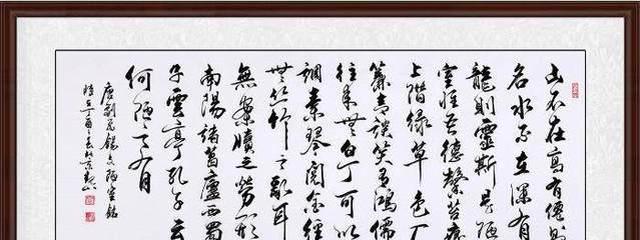 山不在高有僊則
名水不在深有
龍則靈斯是陋
室惟吾德馨苔痕
上階綠草色入
簾青談笑有鴻儒
往來無白丁可以
調素琴閱金經
無絲竹之亂耳
無案牘之勞形
南陽諸葛廬西蜀
子雲亭孔子云
何陋之有
唐劉禹錫文陋室銘
丁酉